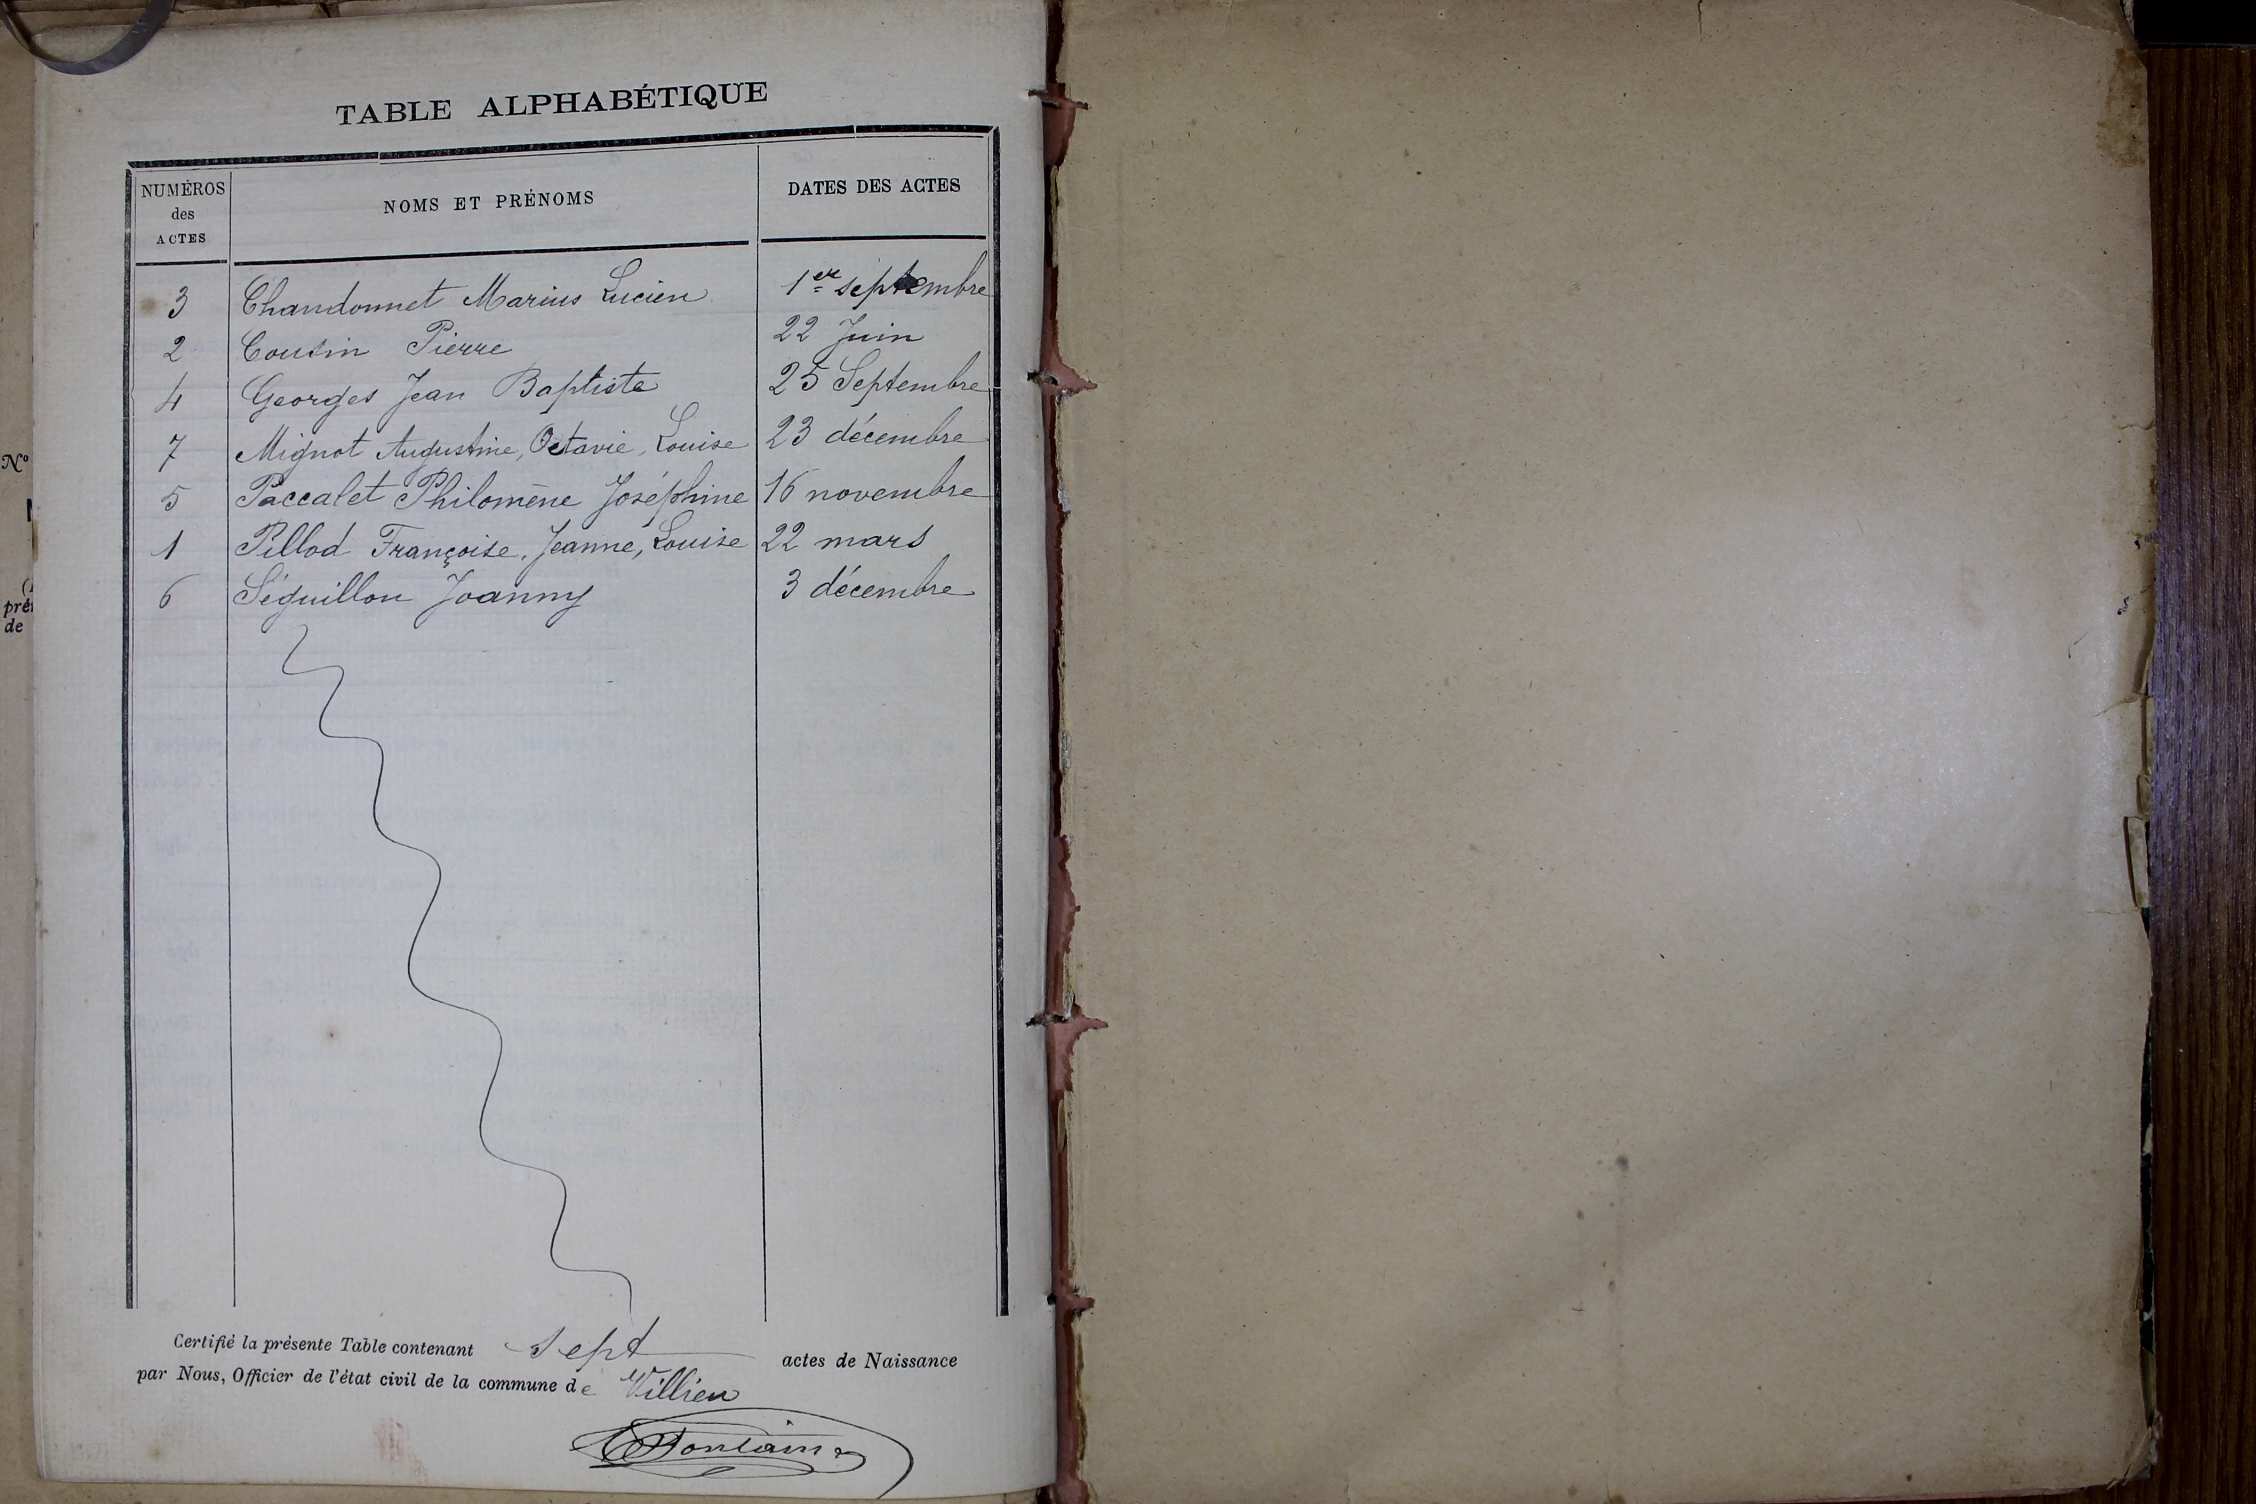 TABLE ALPHABÉTIQUE
NUMÉROS des ACTES NOMS ET PRÉNOMS DATES DES ACTES
3 Chandonnet Marius Lucien 1er septembre
2 Cousin Pierre 22 Juin
4 Georges Jean Baptiste 25 Septembre
7 Mignot Augustine, Octavie, Louise 23 décembre
5 Paccalet Philomène Joséphine 16 novembre
1 Pillod Françoise, Jeanne, Louise 22 mars
6 Séguillon Joanny 3 décembre
Certifié la présente Table contenant sept actes de Naissance
par Nous, Officier de l'état civil de la commune de Villieu
Nº
de